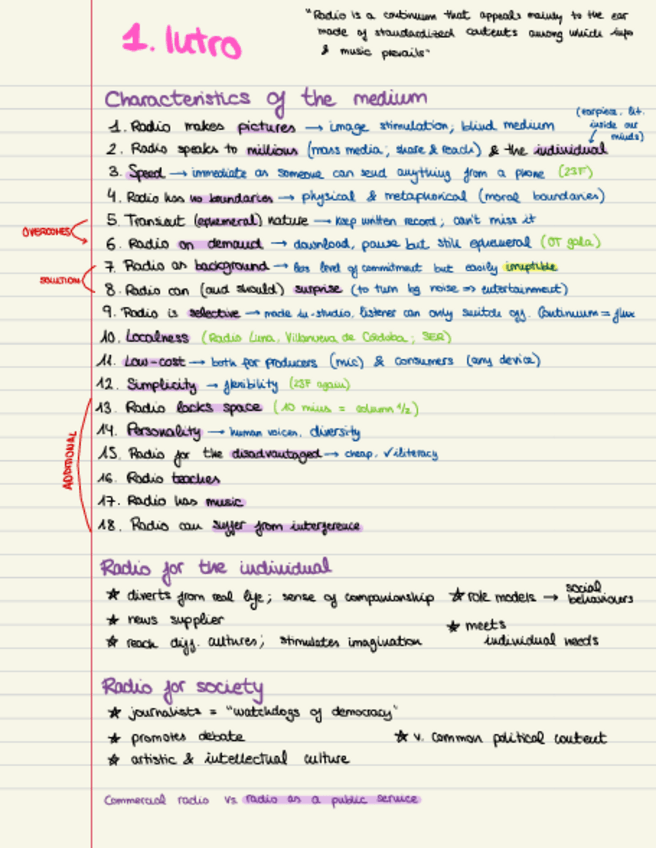 1. Intro
"Radio is a continuum that appeals mainly to the ear
made of standardized contents among which info
& music prevails"
Characteristics of the medium
1. Radio makes pictures → image stimulation; blind medium
(earpiece, lit. inside our minds)
2. Radio speaks to millions (mass media; share & reach) & the individual
3. Speed → immediate as someone can send anything from a phone (23F)
4. Radio has no boundaries → physical & metaphorical (moral boundaries)
5. Transient (ephemeral) nature → keep written record; can't miss it
OVERCOMES
6. Radio on demand → download, pause but still ephemeral (OT gala)
7. Radio as background → less level of commitment but easily irruptible
SOLUTION
8. Radio can (and should) surprise (to turn bg noise => entertainment)
9. Radio is selective → made in-studio, listener can only switch off. Continuum = flux
10. Localness (Radio Luna, Villanueva de Córdoba; SER)
11. Low-cost → both for producers (mic) & consumers (any device)
12. Simplicity → flexibility (23F again)
13. Radio lacks space (10 mins = column 1/2)
14. Personality → human voices, diversity
15. Radio for the disadvantaged → cheap, ✓ iliteracy
ADDITIONAL
16. Radio teaches
17. Radio has music
18. Radio can suffer from interference
Radio for the individual
☆ diverts from real life; sense of companionship ☆ role models → social behaviours
☆ news supplier ☆ meets
☆ reach diff. cultures; stimulates imagination individual needs
Radio for society
☆ journalists = "watchdogs of democracy"
☆ promotes debate ☆ v. common political content
☆ artistic & intellectual culture
Commercial radio vs. radio as a public service